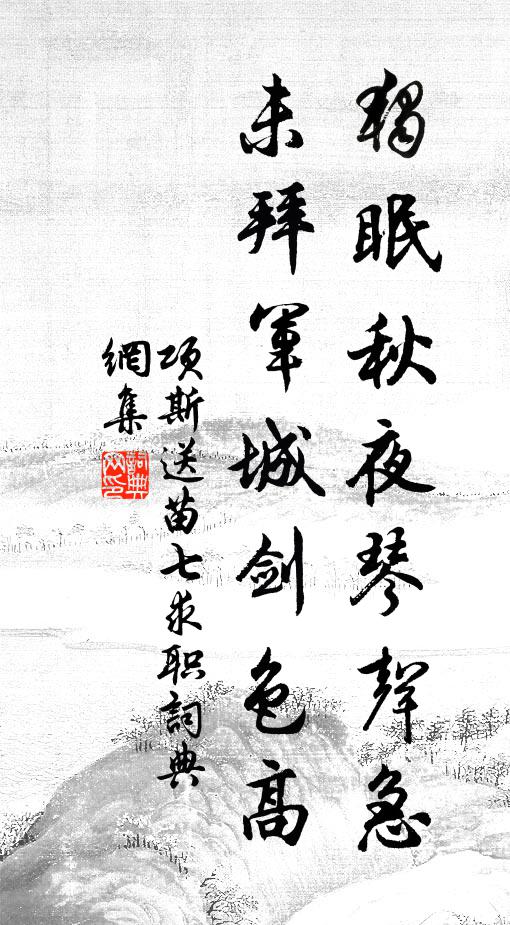 獨眠秋夜琴聲急
未拜軍城劍色高
項斯送苗七求职詞典
網集
詞典
网印